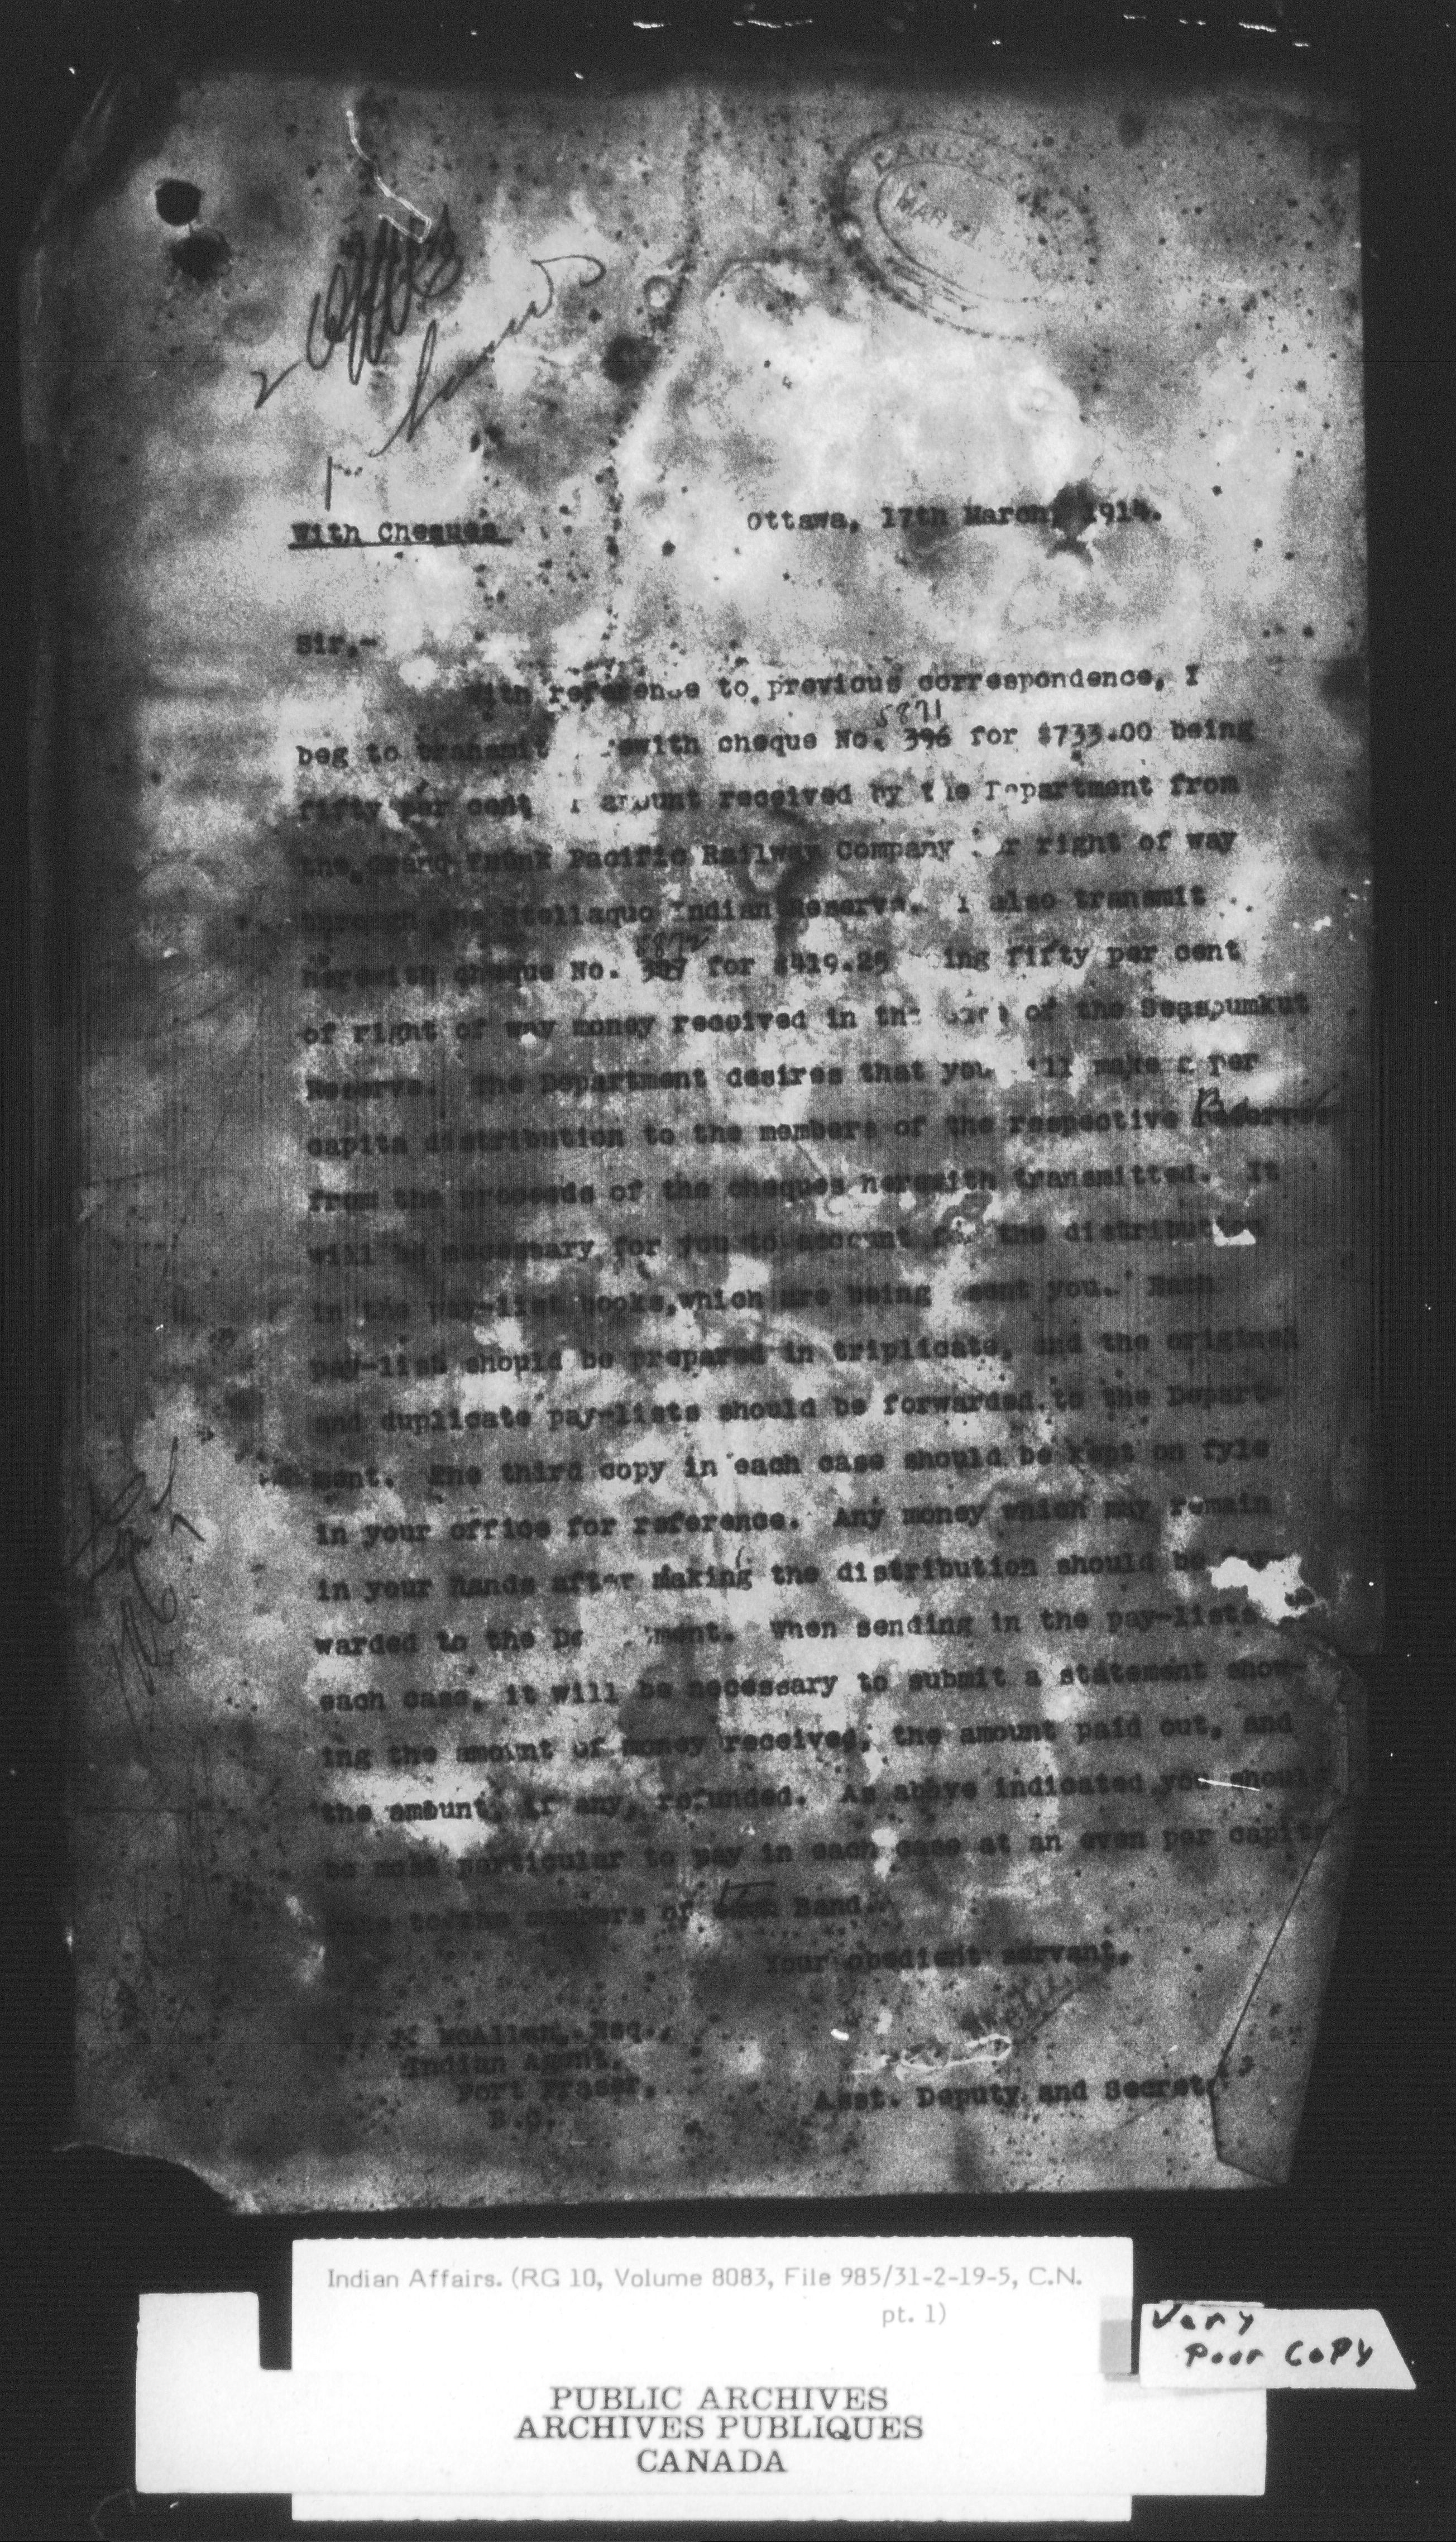 LANDS
MAR 21
With Cheques
Ottawa, 17th March, 1914.
Sir,-
With reference to previous correspondence, I
5871
beg to transmit ewith cheque No. 396 for $733.00 being
fifty per cent amount received by the Department from
the Grand Trunk Pacific Railway Company r right of way
through the Stellaquo Indian Reserve. I also transmit
5872
herewith cheque No. 397 for $419.25 ing fifty per cent
of right of way money received in the case of the Seaspumkut
Reserve. The Department desires that you ill make a per
capita distribution to the members of the respective Reserves
from the proceeds of the cheques herewith transmitted. It
will be necessary for you to account for the distribution
in the pay-list books, which are being sent you. Each
pay-list should be prepared in triplicate, and the original
and duplicate pay-lists should be forwarded to the Depart-
ment. The third copy in each case should be kept on fyle
in your office for reference. Any money which may remain
in your hands after making the distribution should be for-
warded to the De ment. When sending in the pay-lists
each case, it will be necessary to submit a statement show-
ing the amount of money received, the amount paid out, and
the amount, if any, refunded. As above indicated you should
be most particular to pay in each case at an even per capita
rate to the members of each Band.
Your obedient servant,
McAllan, Esq.,
Indian Agent,
Fort Fraser,
B.C.
Asst. Deputy and Secret
Indian Affairs. (RG 10, Volume 8083, File 985/31-2-19-5, C.N.
pt. 1)
Very
Poor Copy
PUBLIC ARCHIVES
ARCHIVES PUBLIQUES
CANADA